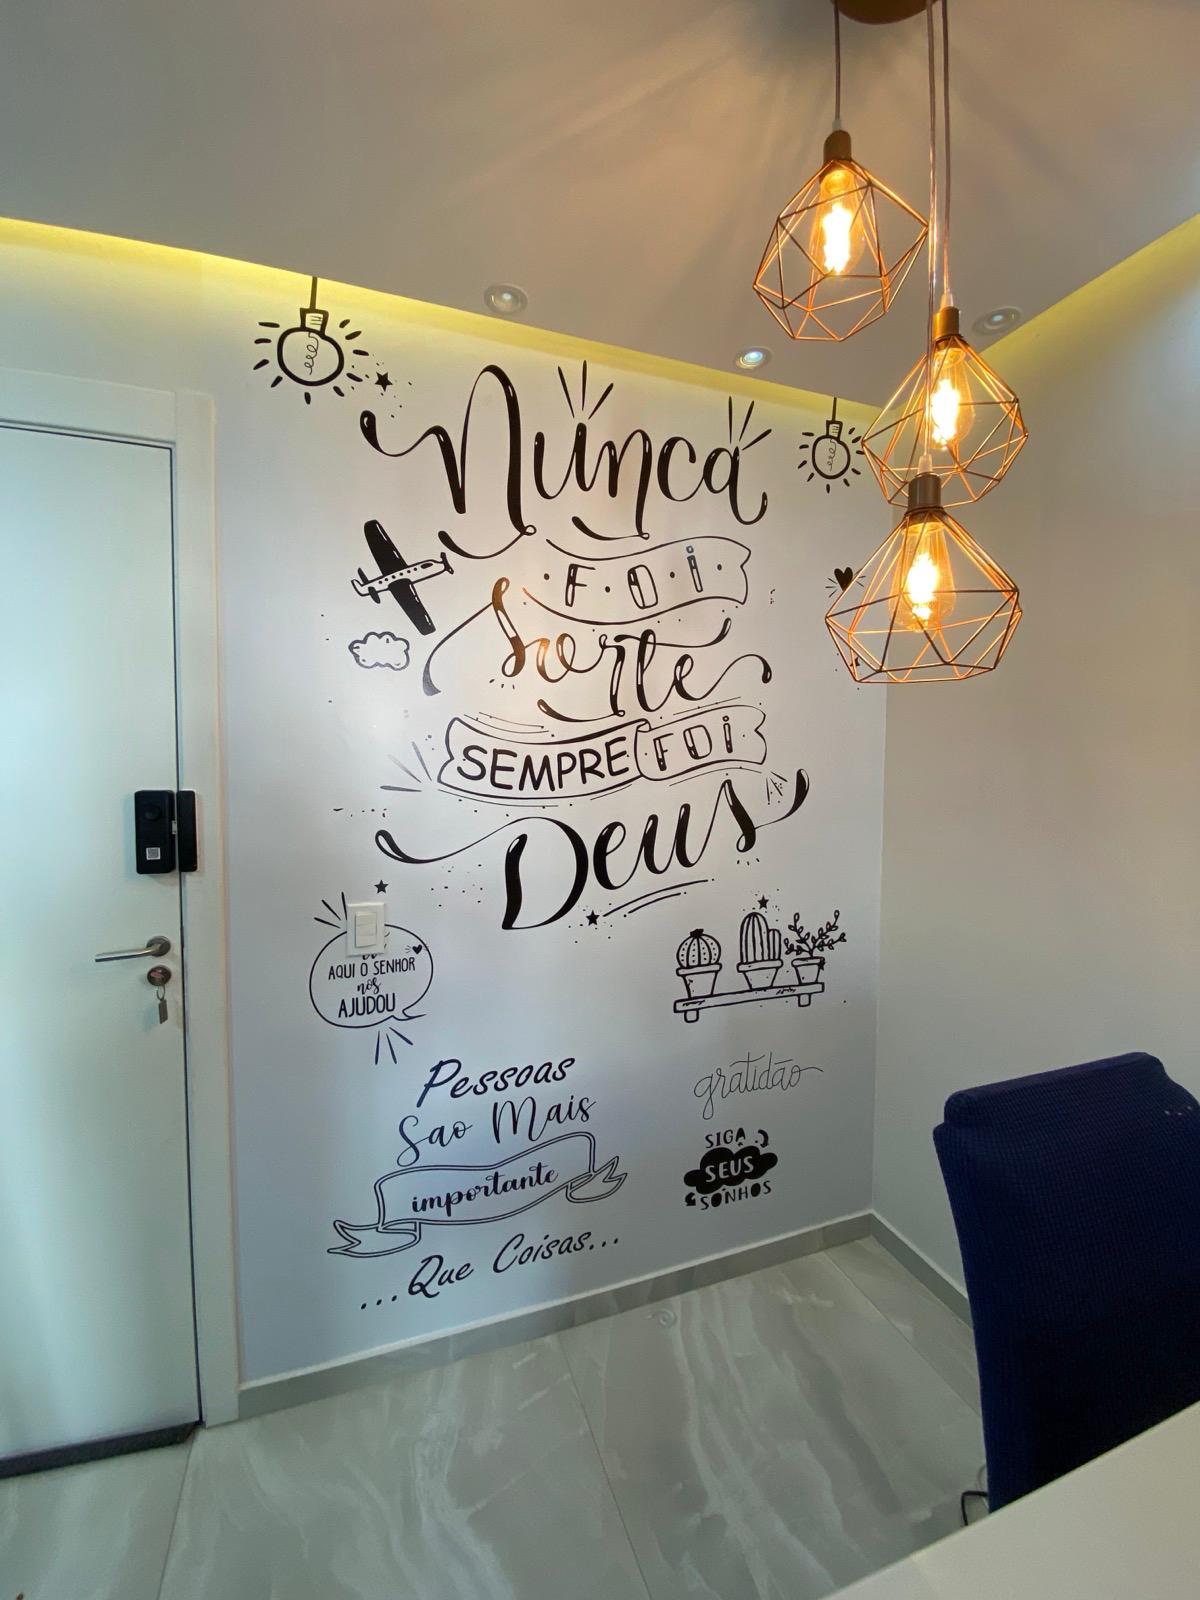 Nunca
FOI
Sorte
SEMPRE FOI
Deus
AQUI O SENHOR
nos
AJUDOU
Pessoas
Sao Mais
importante
...Que Coisas...
gratidão
SIGA
SEUS
SONHOS